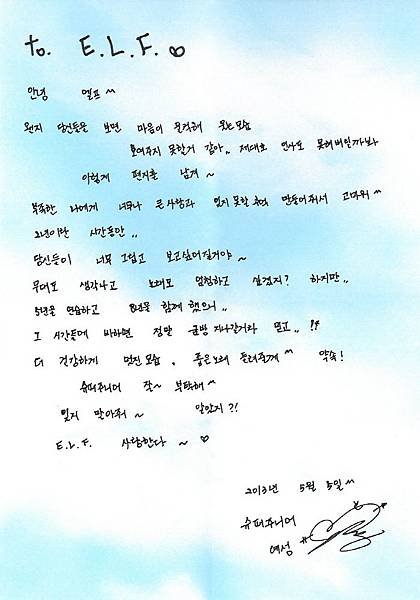 to. E.L.F. ∞
안녕 엘프^^
왠지 당신들을 보면 마음이 뭉클해 웃는모습
보여주지 못할거 같아.. 제대로 인사도 못해버릴까봐
이렇게 편지를 남겨~
부족한 나에게 너무나 큰사랑과 잊지못할 추억 만들어줘서 고마워^^
2년이란 시간동안..
당신들이 너무 그립고 보고싶어질거야~
무대도 생각나고 노래도 엄청하고 싶겠지? 하지만..
5년을 연습하고 8년을 함께 했으니..
그 시간들에 비하면 정말 금방 지나갈거라 믿고..!!
더 건강하게 멋진모습, 좋은노래 들려줄게^^ 약속!
슈퍼주니어 잘~ 부탁해^^
잊지 말아줘~ 알았지?!
E.L.F. 사랑한다~♡
2013년 5월 5일^^
슈퍼주니어
예성